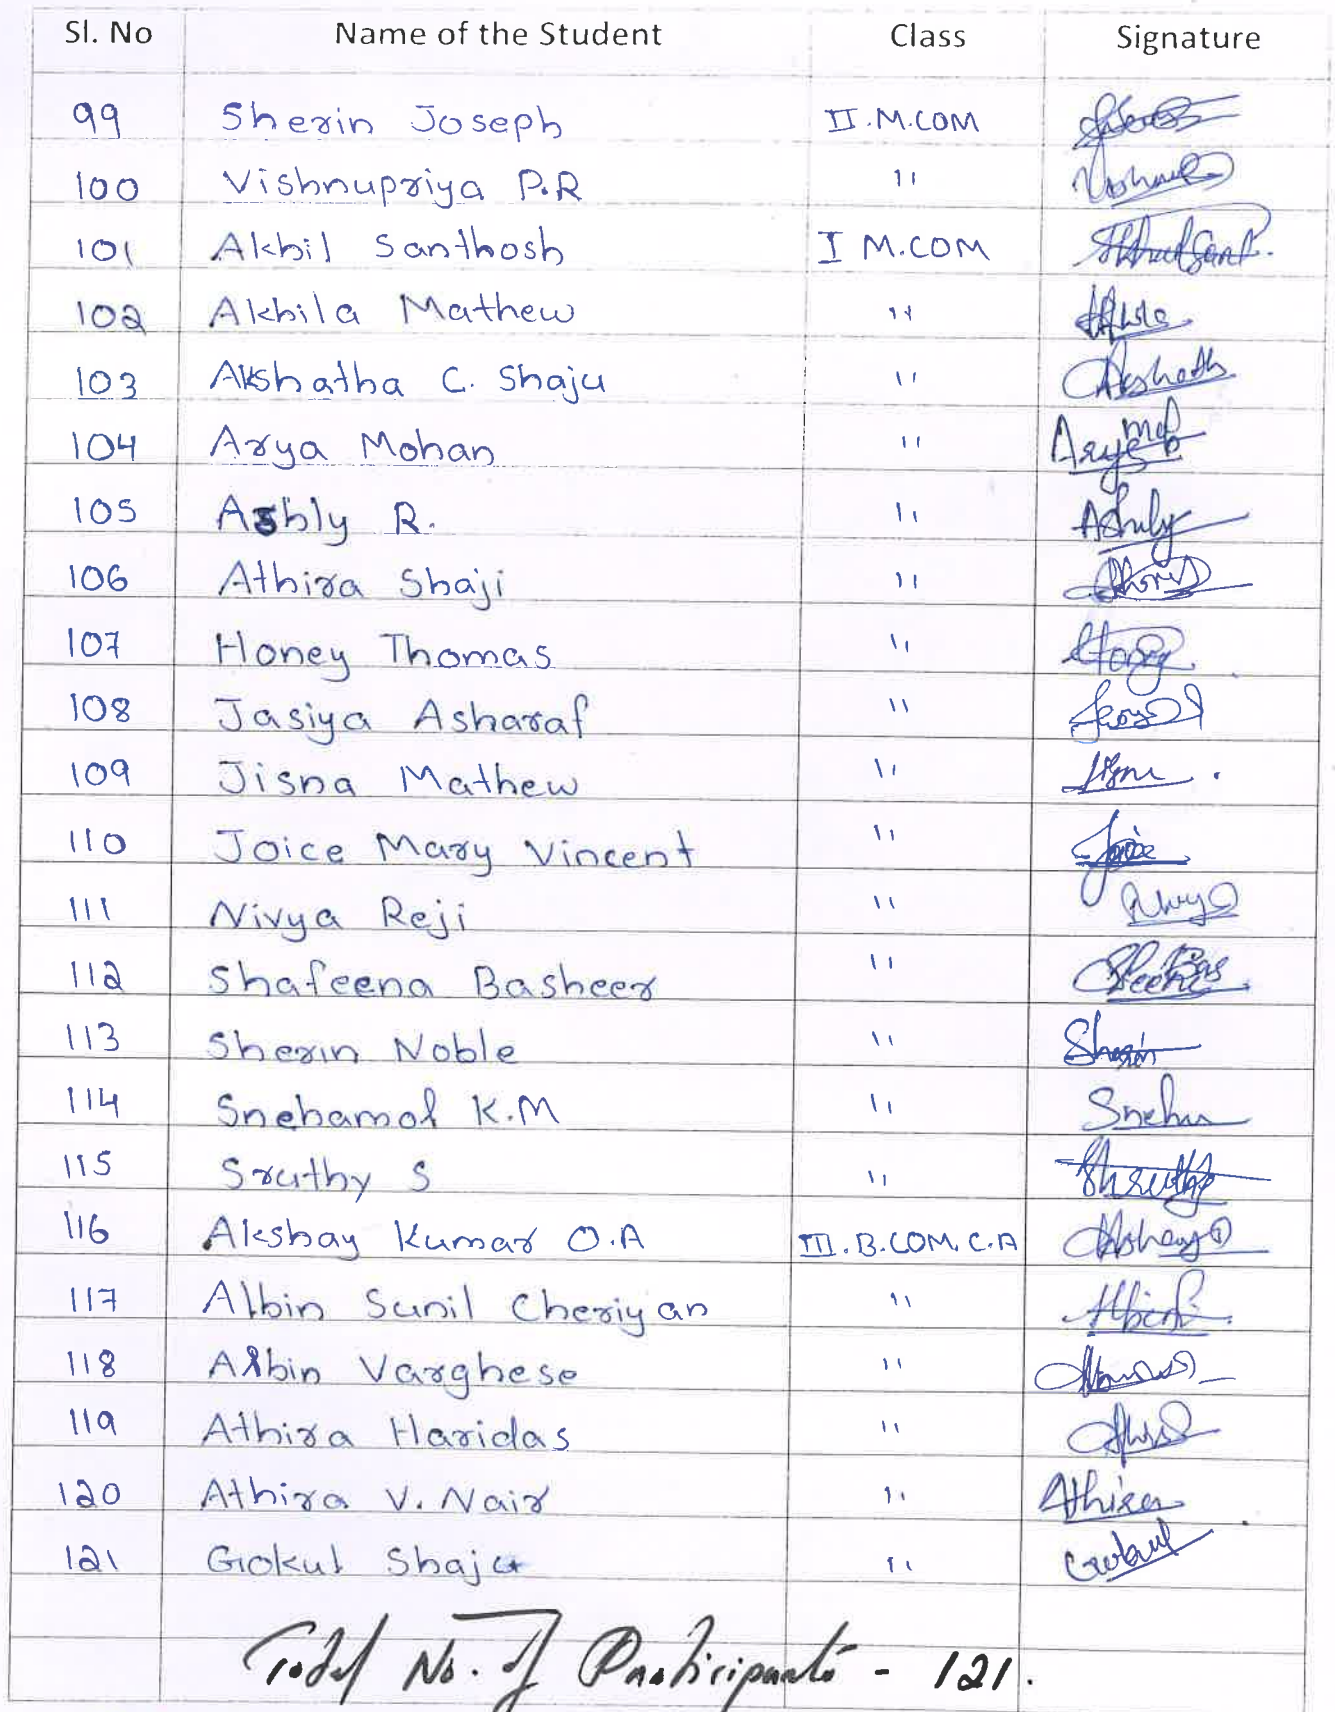 Sl. No Name of the Student Class Signature
99 Sherin Joseph II.M.COM
100 Vishnupriya P.R "
101 Akhil Santhosh I M.COM
102 Akhila Mathew " Akhila
103 Akshatha C. Shaju " Akshath
104 Arya Mohan " Arya
105 Ashly R. " Ashly
106 Athira Shaji "
107 Honey Thomas " Honey
108 Jasiya Asharaf "
109 Jisna Mathew " Jisna
110 Joice Mary Vincent " Joice
111 Nivya Reji " Nivya
112 Shafeena Basheer "
113 Sherin Noble " Sherin
114 Snehamol K.M " Sneha
115 Sruthy S " Shruthy
116 Akshay Kumar O.A III.B.COM.C.A
117 Albin Sunil Cheriyan "
118 Albin Varghese "
119 Athira Haridas "
120 Athira V. Nair " Athira
121 Gokul Shaju " Gokul
Total No. of Participants - 121.